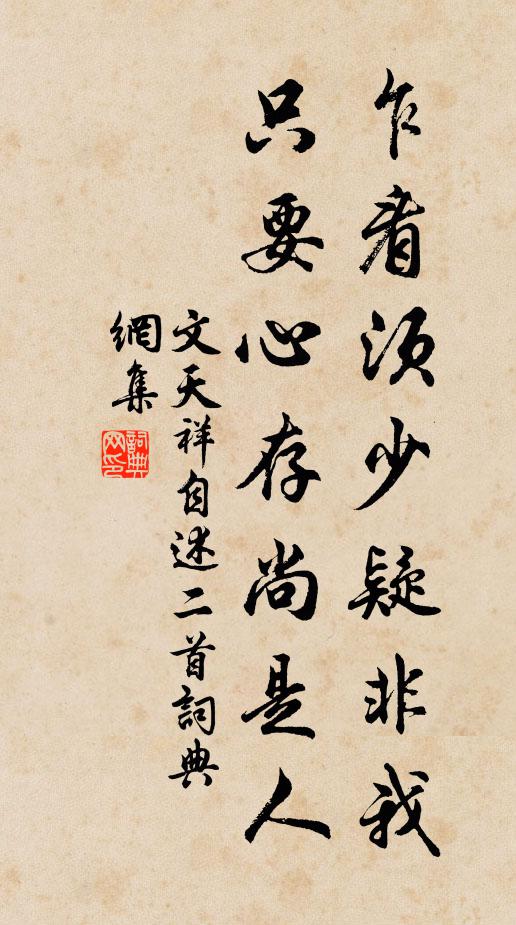 乍看須少疑非我
只要心存尚是人
文天祥自述二首詞典
網集
詞典
网印